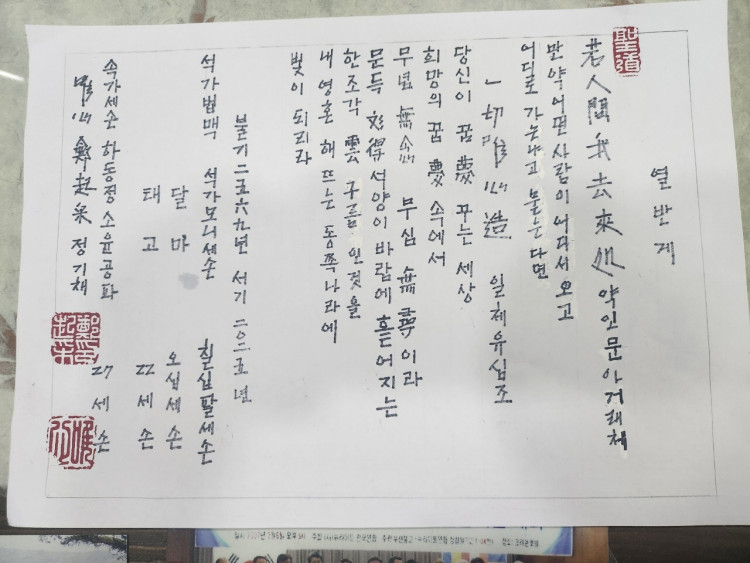 聖道
열반게
若人問我去來処 약인문아거래처
만약 어떤 사람이 어디서 오고
어디로 가는냐고 묻는다면
一切唯心造 일체유심조
당신이 꿈 夢 꾸는 세상
희망의 꿈 夢 속에서
무념 無念 무심 無尋이라
문득 忽得 석양이 바람에 흩어지는
한조각 雲 구름인것을
내 영혼 해 뜨는 동쪽나라에
빛이 되리라
불기 二五六九년 서기 二〇二五년
석가법맥 석가모니세손 칠십팔세손
달마 오십세손
태고 22세손
속가세손 하동정 소윤공파 27세손
唯心 鄭起采 정기채